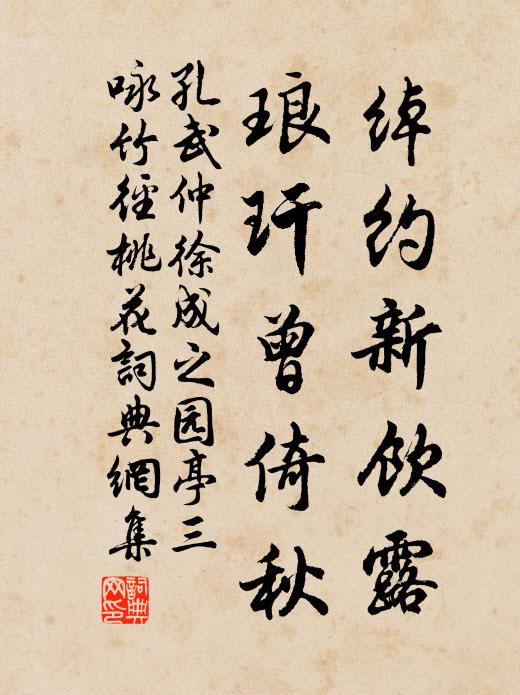 绰约新饮露
琅玕曾倚秋
孔武仲徐成之园亭三
咏竹径桃花詞典網集
詞典网印